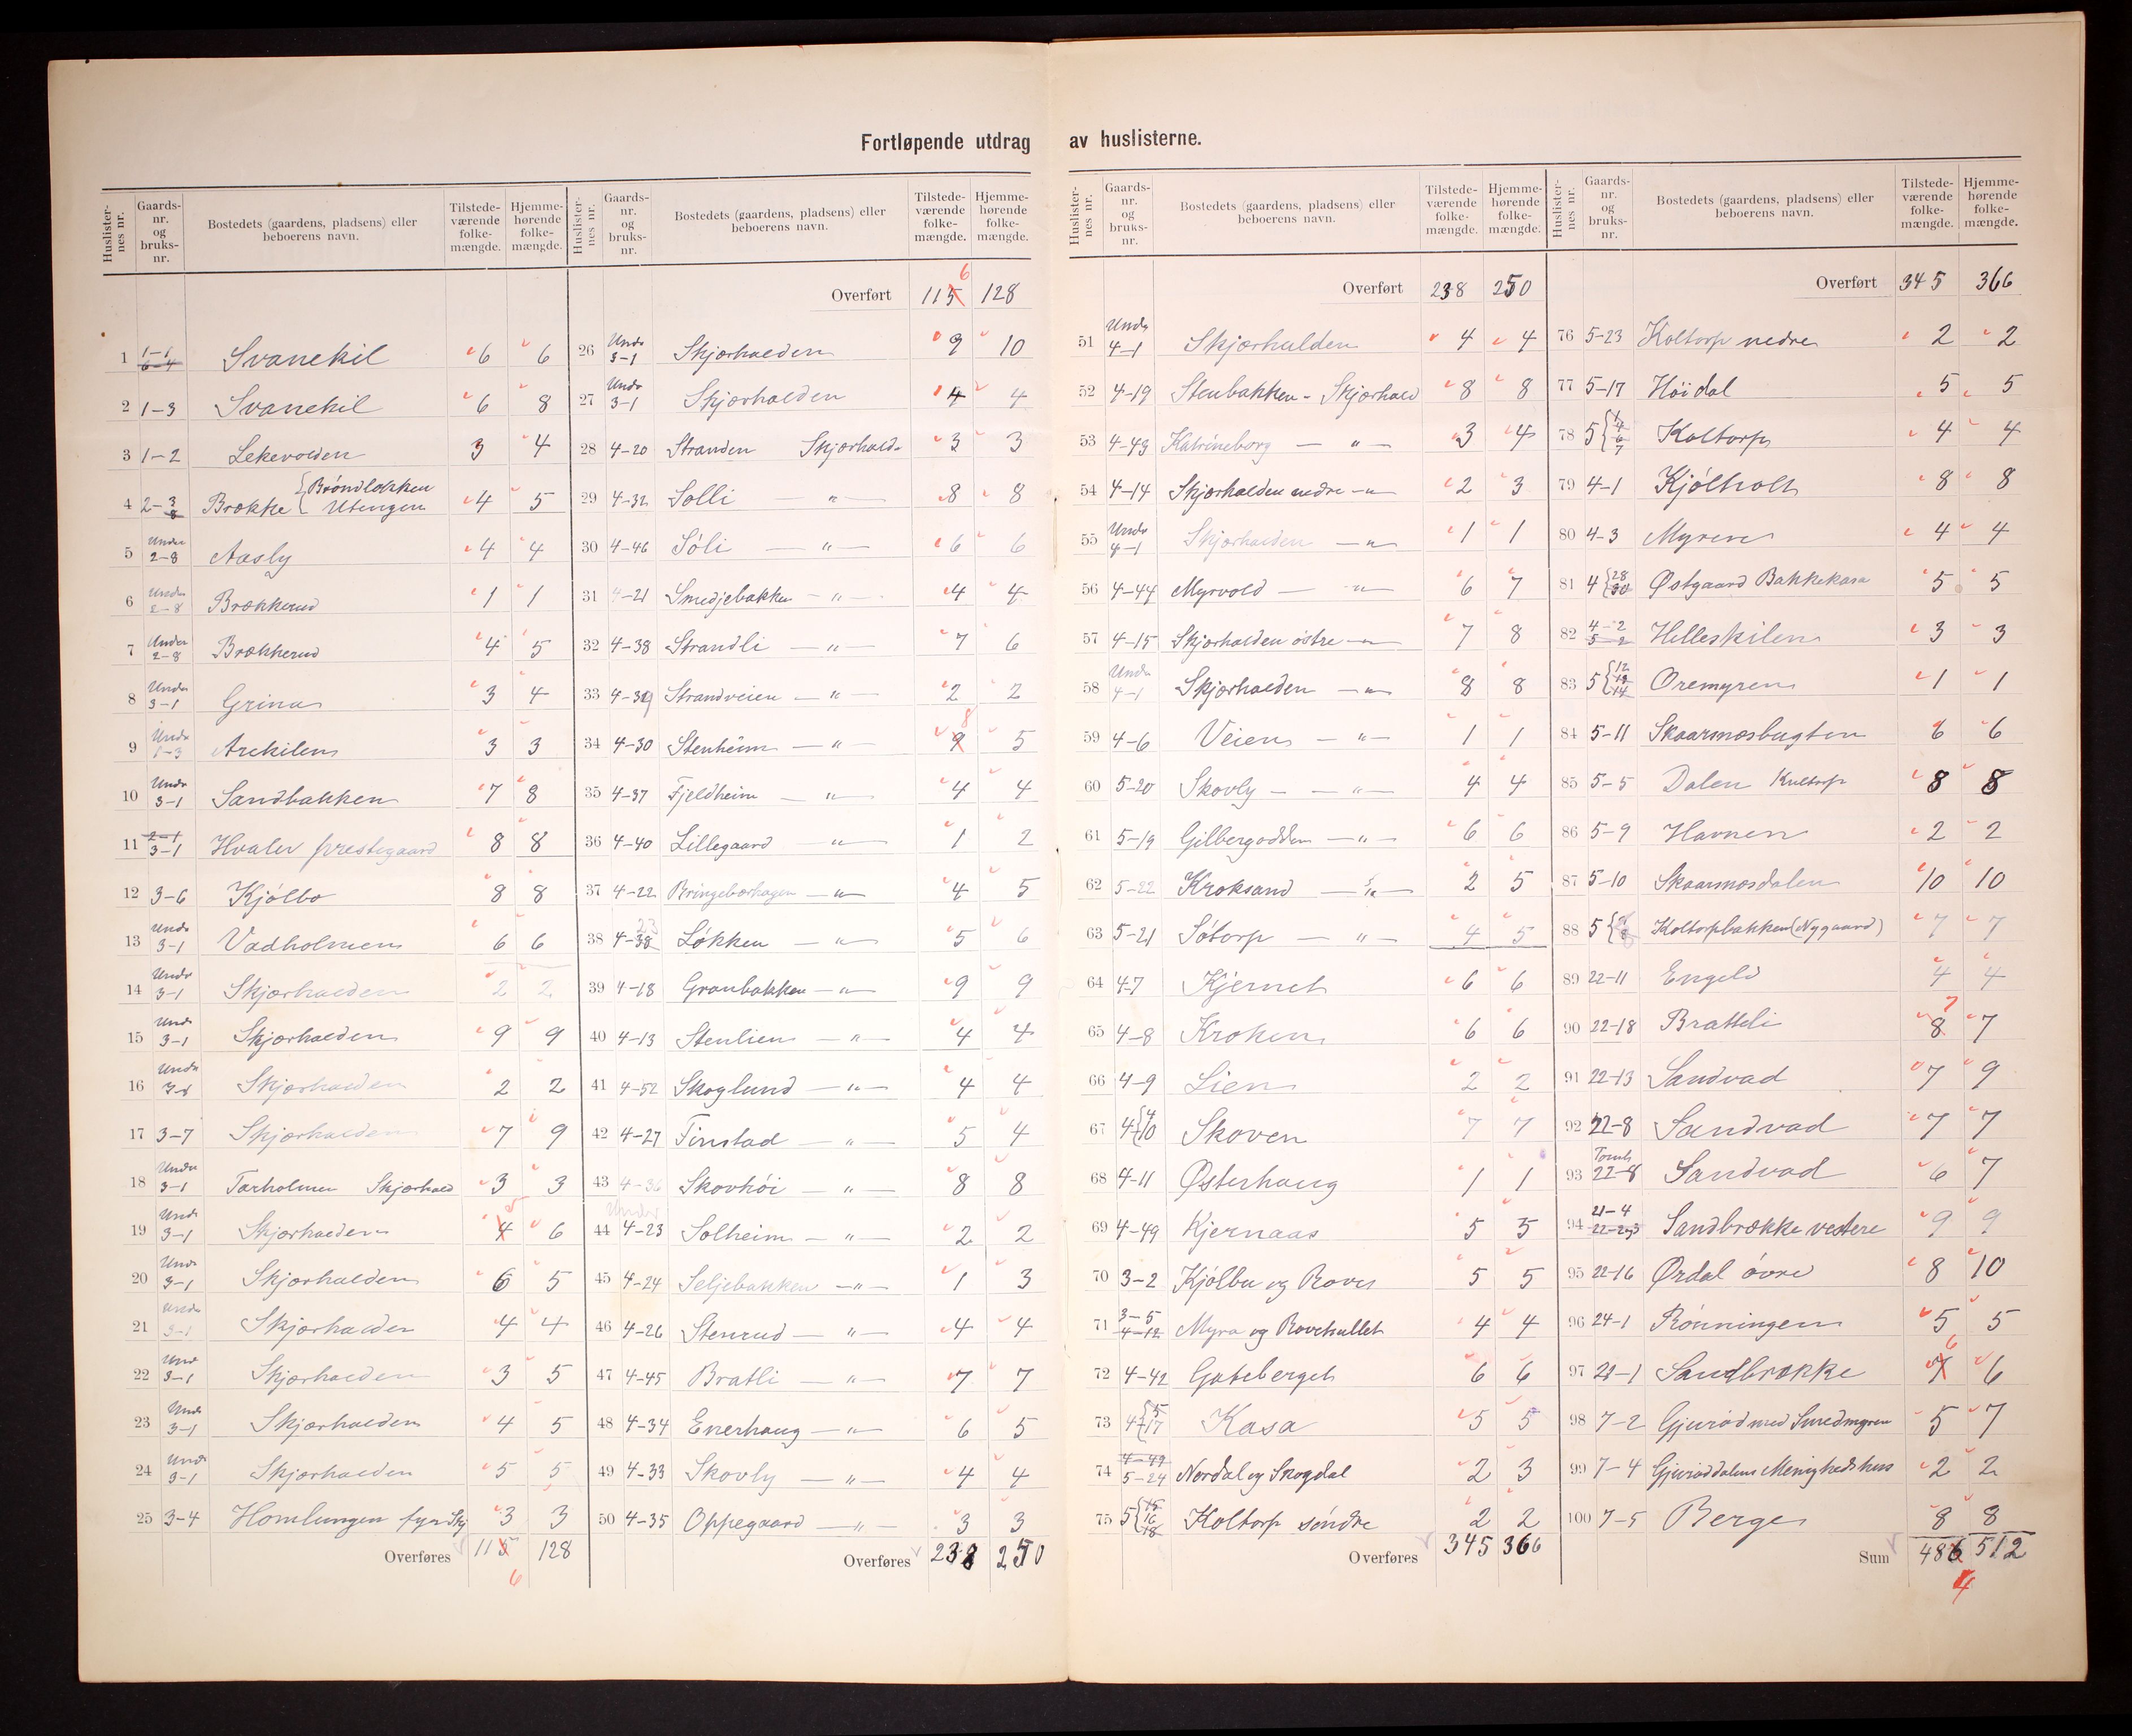 Fortløpende utdrag av huslisterne.
Huslisternes nr. Gaards-nr. og bruks-nr. Bostedets (gaardens, pladsens) eller beboerens navn. Tilstedeværende folkemængde. Hjemmehørende folkemængde.
1 1-1 6-4 Svanekil 6 6
2 1-3 Svanekil 6 8
3 1-2 Lekevolden 3 4
4 2-3 8 Brække { Brøndløkken Utengen 4 5
5 Under 2-8 Aasly 4 4
6 Under 2-8 Brækkerud 1 1
7 Under 2-8 Brækkerud 4 5
8 Under 3-1 Grina 3 4
9 Under 1-3 Arekilen 3 3
10 Under 3-1 Sandbakken 7 8
11 2-1 3-1 Hvaler prestegaard 8 8
12 3-6 Kjølbo 8 8
13 Under 3-1 Vadholmen 6 6
14 Under 3-1 Skjærhalden 2 2
15 Under 3-1 Skjærhalden 9 9
16 Under 3-1 Skjærhalden 2 2
17 3-7 Skjærhalden 7 9
18 Under 3-1 Tarholmen Skjærhald 3 3
19 Under 3-1 Skjærhalden 4 6
20 Under 3-1 Skjærhalden 6 5
21 Under 3-1 Skjærhalden 4 4
22 Under 3-1 Skjærhalden 3 5
23 Under 3-1 Skjærhalden 4 5
24 Under 3-1 Skjærhalden 5 5
25 3-4 Homlungen fyr Skj 3 3
Overføres 115 6 128
Huslisternes nr. Gaards-nr. og bruks-nr. Bostedets (gaardens, pladsens) eller beboerens navn. Tilstedeværende folkemængde. Hjemmehørende folkemængde.
Overført 115 6 128
26 Under 3-1 Skjærhalden 9 10
27 Under 3-1 Skjærhalden 4 4
28 4-20 Stranden Skjærhald 3 3
29 4-32 Solli — " — 8 8
30 4-46 Sóli — " — 6 6
31 4-21 Smedjebakken — " — 4 4
32 4-38 Strandli — " — 7 6
33 4-39 Strandveien — " — 2 2
34 4-30 Stenheim — " — 9 8 5
35 4-37 Fjeldheim — " — 4 4
36 4-40 Lillegaard " — 1 2
37 4-22 Bringebærhagen — " — 4 5
38 4-38 23 Løkken — " — 5 6
39 4-18 Granbakken — " — 9 9
40 4-13 Stenlien — " — 4 4
41 4-52 Skoglund — " — 4 4
42 4-27 Finstad — " — 5 4
43 4-36 Skovhöi — " — 8 8
44 Under 4-23 Solheim — " — 2 2
45 4-24 Seljebakken — " — 1 3
46 4-26 Stenrud — " — 4 4
47 4-45 Bratli — " — 7 7
48 4-34 Enerhaug — " — 6 5
49 4-33 Skovly — " — 4 4
50 4-35 Oppegaard — " — 3 3
Overføres 238 250
Huslisternes nr. Gaards-nr. og bruks-nr. Bostedets (gaardens, pladsens) eller beboerens navn. Tilstedeværende folkemængde. Hjemmehørende folkemængde.
Overført 238 250
51 Under 4-1 Skjærhalden 4 4
52 4-19 Stenbakken - Skjærhald 8 8
53 4-43 Katrineborg — " — 3 4
54 4-14 Skjærhalden nedre — " 2 3
55 Under 4-1 Skjærhalden — " 1 1
56 4-44 Myrvold — " — 6 7
57 4-15 Skjærhalden östre — " 7 8
58 Under 4-1 Skjærhalden — " 8 8
59 4-6 Veien — " — 1 1
60 5-20 Skovly — " — 4 4
61 5-19 Gilbergodden — " — 6 6
62 5-22 Kroksand — " — 2 5
63 5-21 Sötorp — " — 4 5
64 4-7 Kjernet 6 6
65 4-8 Kroken 6 6
66 4-9 Lien 2 2
67 4 { 4 10 Skoven 7 7
68 4-11 Østerhaug 1 1
69 4-49 Kjernaas 5 5
70 3-2 Kjølbu og Rove 5 5
71 3-5 4-12 Myra og Rovehullet 4 4
72 4-42 Gateberget 6 6
73 4 { 5 17 Kasa 5 5
74 5-24 Nordal og Skogdal 2 3
75 5 { 15 16 18 Koltorp søndre 2 2
Overføres 345 366
Huslisternes nr. Gaards-nr. og bruks-nr. Bostedets (gaardens, pladsens) eller beboerens navn. Tilstedeværende folkemængde. Hjemmehørende folkemængde.
Overført 345 366
76 5-23 Koltorp nedre 2 2
77 5-17 Höidal 5 5
78 5 { 4 6 7 Koltorp 4 4
79 4-1 Kjölholt 8 8
80 4-3 Myren 4 4
81 4 { 28 30 Østgaard Bakkekasa 5 5
82 4-2 5-2 Helleskilen 3 3
83 5 { 12 13 14 Oremyren 1 1
84 5-11 Skaarmosbugten 6 6
85 5-5 Dalen Kultorp 8 8
86 5-9 Havnen 2 2
87 5-10 Skaarmosdalen 10 10
88 5 { 8 Koltorpbakken (Nygaard) 7 7
89 22-11 Engeli 4 4
90 22-18 Bratteli 8 7 7
91 22-13 Sandvad 7 9
92 22-8 Sandvad 7 7
93 22-8 Sandvad 6 7
94 21-4 Sandbrække vestere 9 9
95 22-16 Ørdal övre 8 10
96 24-1 Rönningen 5 5
97 21-1 Sandbrække 7 6 6
98 7-2 Gjuröd med Smedmyren 5 7
99 7-4 Gjuröddalens Menighedshus 2 2
100 7-5 Berge 8 8
Sum 486 4 512